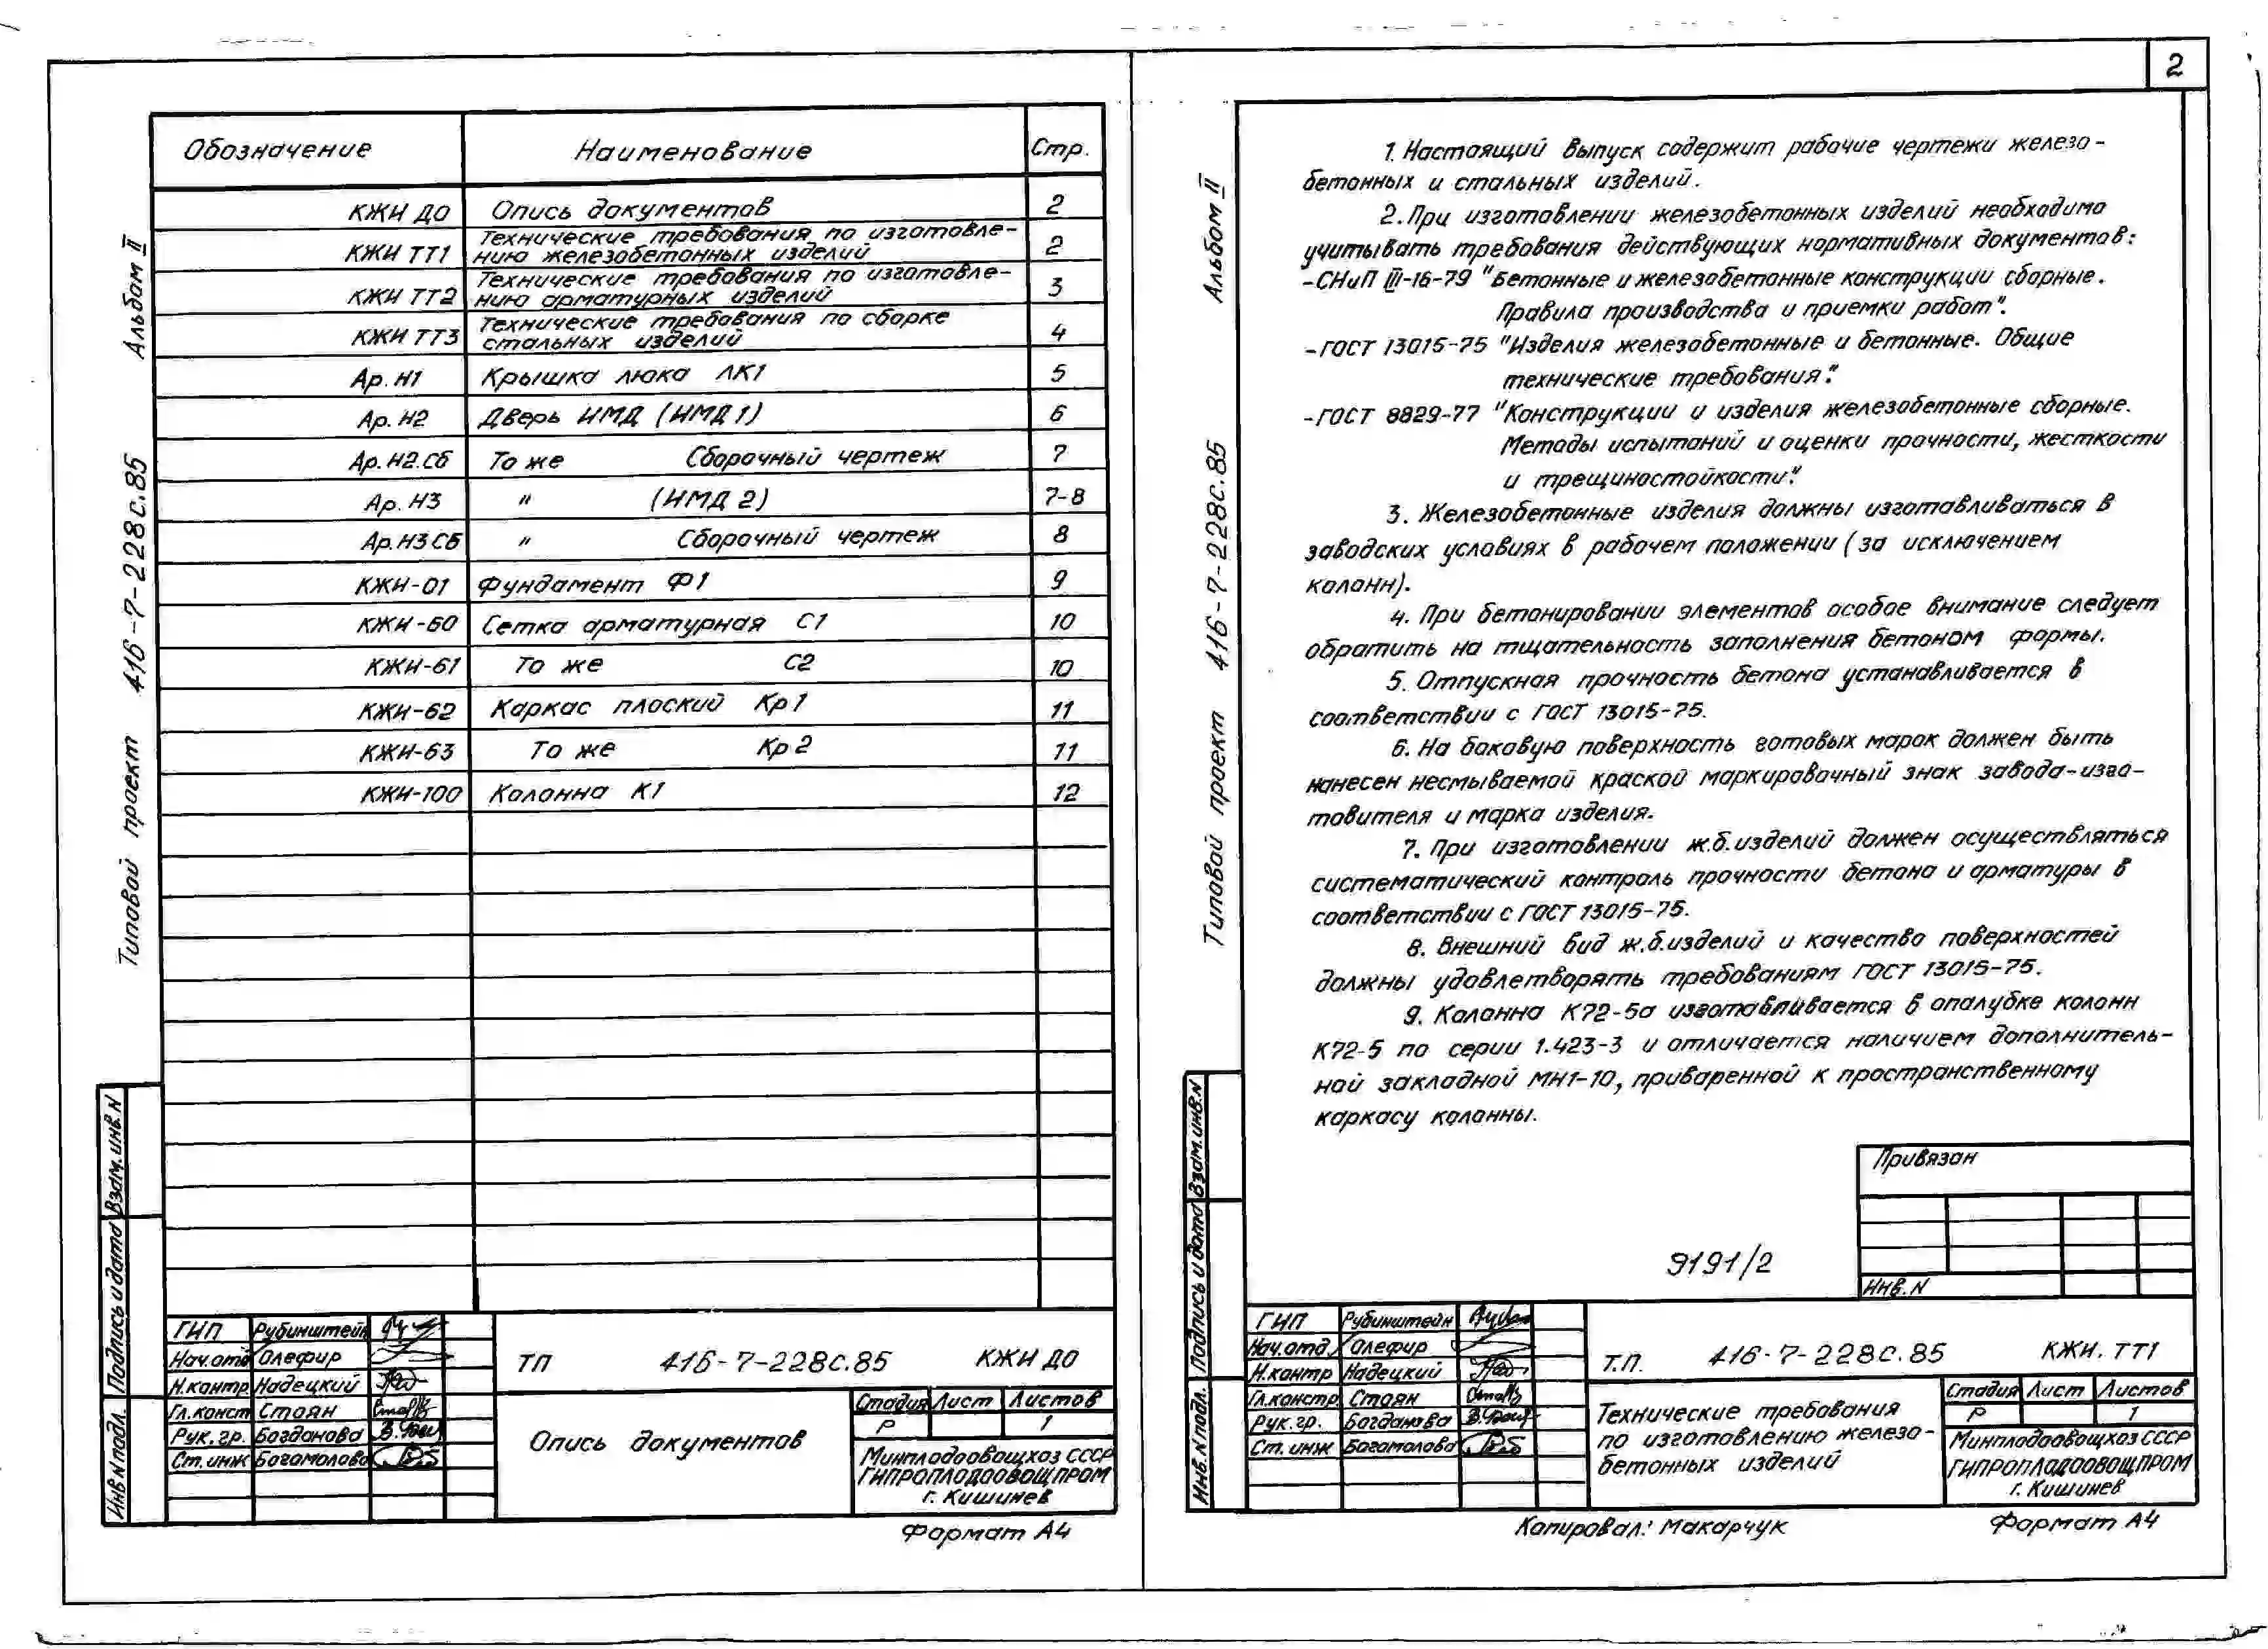 2
Альбом II
Типовой проект 416-7-228с.85
Обозначение Наименование Стр.
КЖИ ДО Опись документов 2
КЖИ ТТ1 Технические требования по изготовле-
нию железобетонных изделий 2
КЖИ ТТ2 Технические требования по изготовле-
нию арматурных изделий 3
КЖИ ТТ3 Технические требования по сборке
стальных изделий 4
Ар.Н1 Крышка люка ЛК1 5
Ар.Н2 Дверь ИМД (ИМД 1) 6
Ар.Н2.Сб То же Сборочный чертеж 7
Ар.Н3 " (ИМД 2) 7-8
Ар.Н3 Сб " Сборочный чертеж 8
КЖИ-01 Фундамент Ф1 9
КЖИ-60 Сетка арматурная С1 10
КЖИ-61 То же С2 10
КЖИ-62 Каркас плоский Кр1 11
КЖИ-63 То же Кр2 11
КЖИ-100 Колонна К1 12
Взам.инв.N
Подпись и дата
Инв.N подл.
ГИП Рубинштейн
Нач.отд Олефир
Н.контр Надецкий
Гл.конст Стоян
Рук.гр. Богданова
Ст.инж Богомолова
ТП 416-7-228с.85 КЖИ ДО
Опись документов
Стадия Лист Листов
Р 1
Минплодоовощхоз СССР
ГИПРОПЛОДООВОЩПРОМ
г. Кишинев
Формат А4
Альбом II
Типовой проект 416-7-228с.85
1. Настоящий выпуск содержит рабочие чертежи железо-
бетонных и стальных изделий.
2. При изготовлении железобетонных изделий необходимо
учитывать требования действующих нормативных документов:
-СНиП III-16-79 "Бетонные и железобетонные конструкции сборные.
Правила производства и приемки работ".
-ГОСТ 13015-75 "Изделия железобетонные и бетонные. Общие
технические требования".
-ГОСТ 8829-77 "Конструкции и изделия железобетонные сборные.
Методы испытаний и оценки прочности, жесткости
и трещиностойкости".
3. Железобетонные изделия должны изготавливаться в
заводских условиях в рабочем положении (за исключением
колонн).
4. При бетонировании элементов особое внимание следует
обратить на тщательность заполнения бетоном формы.
5. Отпускная прочность бетона устанавливается в
соответствии с ГОСТ 13015-75.
6. На боковую поверхность готовых марок должен быть
нанесен несмываемой краской маркировочный знак завода-изго-
товителя и марка изделия.
7. При изготовлении ж.б.изделий должен осуществляться
систематический контроль прочности бетона и арматуры в
соответствии с ГОСТ 13015-75.
8. Внешний вид ж.б.изделий и качество поверхностей
должны удовлетворять требованиям ГОСТ 13015-75.
9. Колонна К72-5а изготавливается в опалубке колонн
К72-5 по серии 1.423-3 и отличается наличием дополнитель-
ной закладной МН1-10, приваренной к пространственному
каркасу колонны.
Привязан
Инв.N
9191/2
Взам.инв.N
Подпись и дата
Инв.N подл.
ГИП Рубинштейн
Нач.отд Олефир
Н.контр Надецкий
Гл.констр Стоян
Рук.гр. Богданова
Ст.инж Богомолова
Т.П. 416-7-228с.85 КЖИ. ТТ1
Технические требования
по изготовлению железо-
бетонных изделий
Стадия Лист Листов
Р 1
Минплодоовощхоз СССР
ГИПРОПЛОДООВОЩПРОМ
г. Кишинев
Копировал: Макарчук
Формат А4